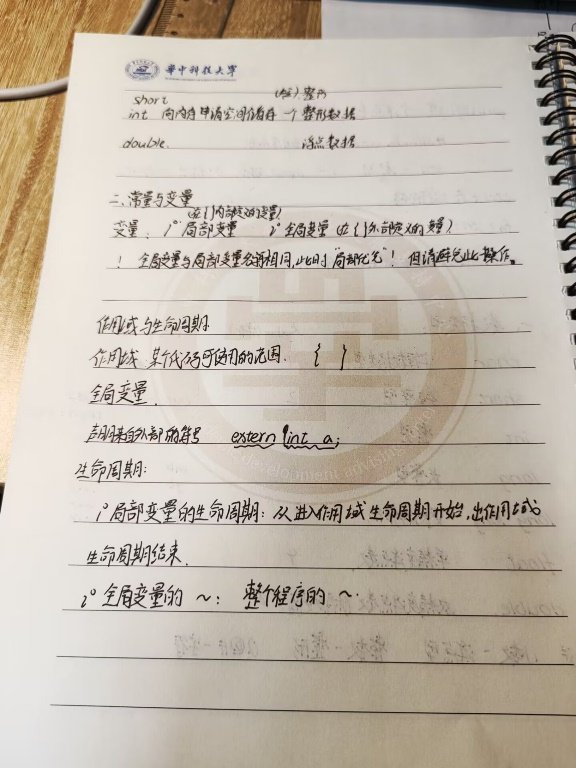 華中科技大学
short (短)整形
int 向内存申请空间储存一个整形数据
double 浮点数据
二、常量与变量
(在{}内部定义的变量)
变量: 1° 局部变量 2° 全局变量 (在{}外部定义的变量)
! 全局变量与局部变量名称相同,此时"局部优先"! 但请避免此操作。
作用域与生命周期
作用域 某个代码可使用的范围. { }
全局变量.
声明来自外部的符号 extern int a;
生命周期:
1° 局部变量的生命周期: 从进入作用域生命周期开始,出作用域
生命周期结束.
2° 全局变量的 ~: 整个程序的 ~.
development advising